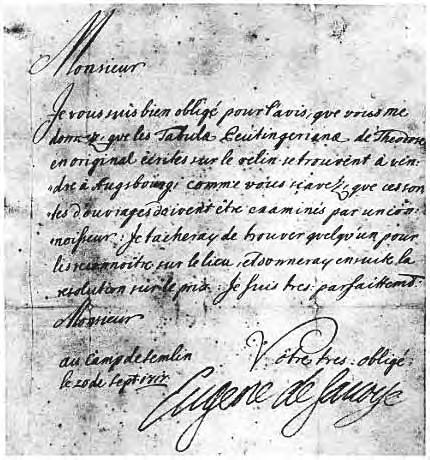 Monsieur
Je vous suis bien obligé pour l'avis, que vous me
donnez, que les Tabula Peutingeriana de Theodose
en original écrites sur le velin se trouvent à ven:
:dre à Augsbourg; comme vous sçavez, que ces sor
:tes d'ouvrages doivent étre examinés par un con:
:noisseur: Je tacheray de trouver quelqu'un pour
les reconnoitre sur le lieu, et donneray ensuite la
resolution sur le prix. Je suis tres parfaittemt.
Monsieur
au Camp de Semlin
le 20 de Sept: 1717
Vôtre tres: obligé
Eugene de Savoye